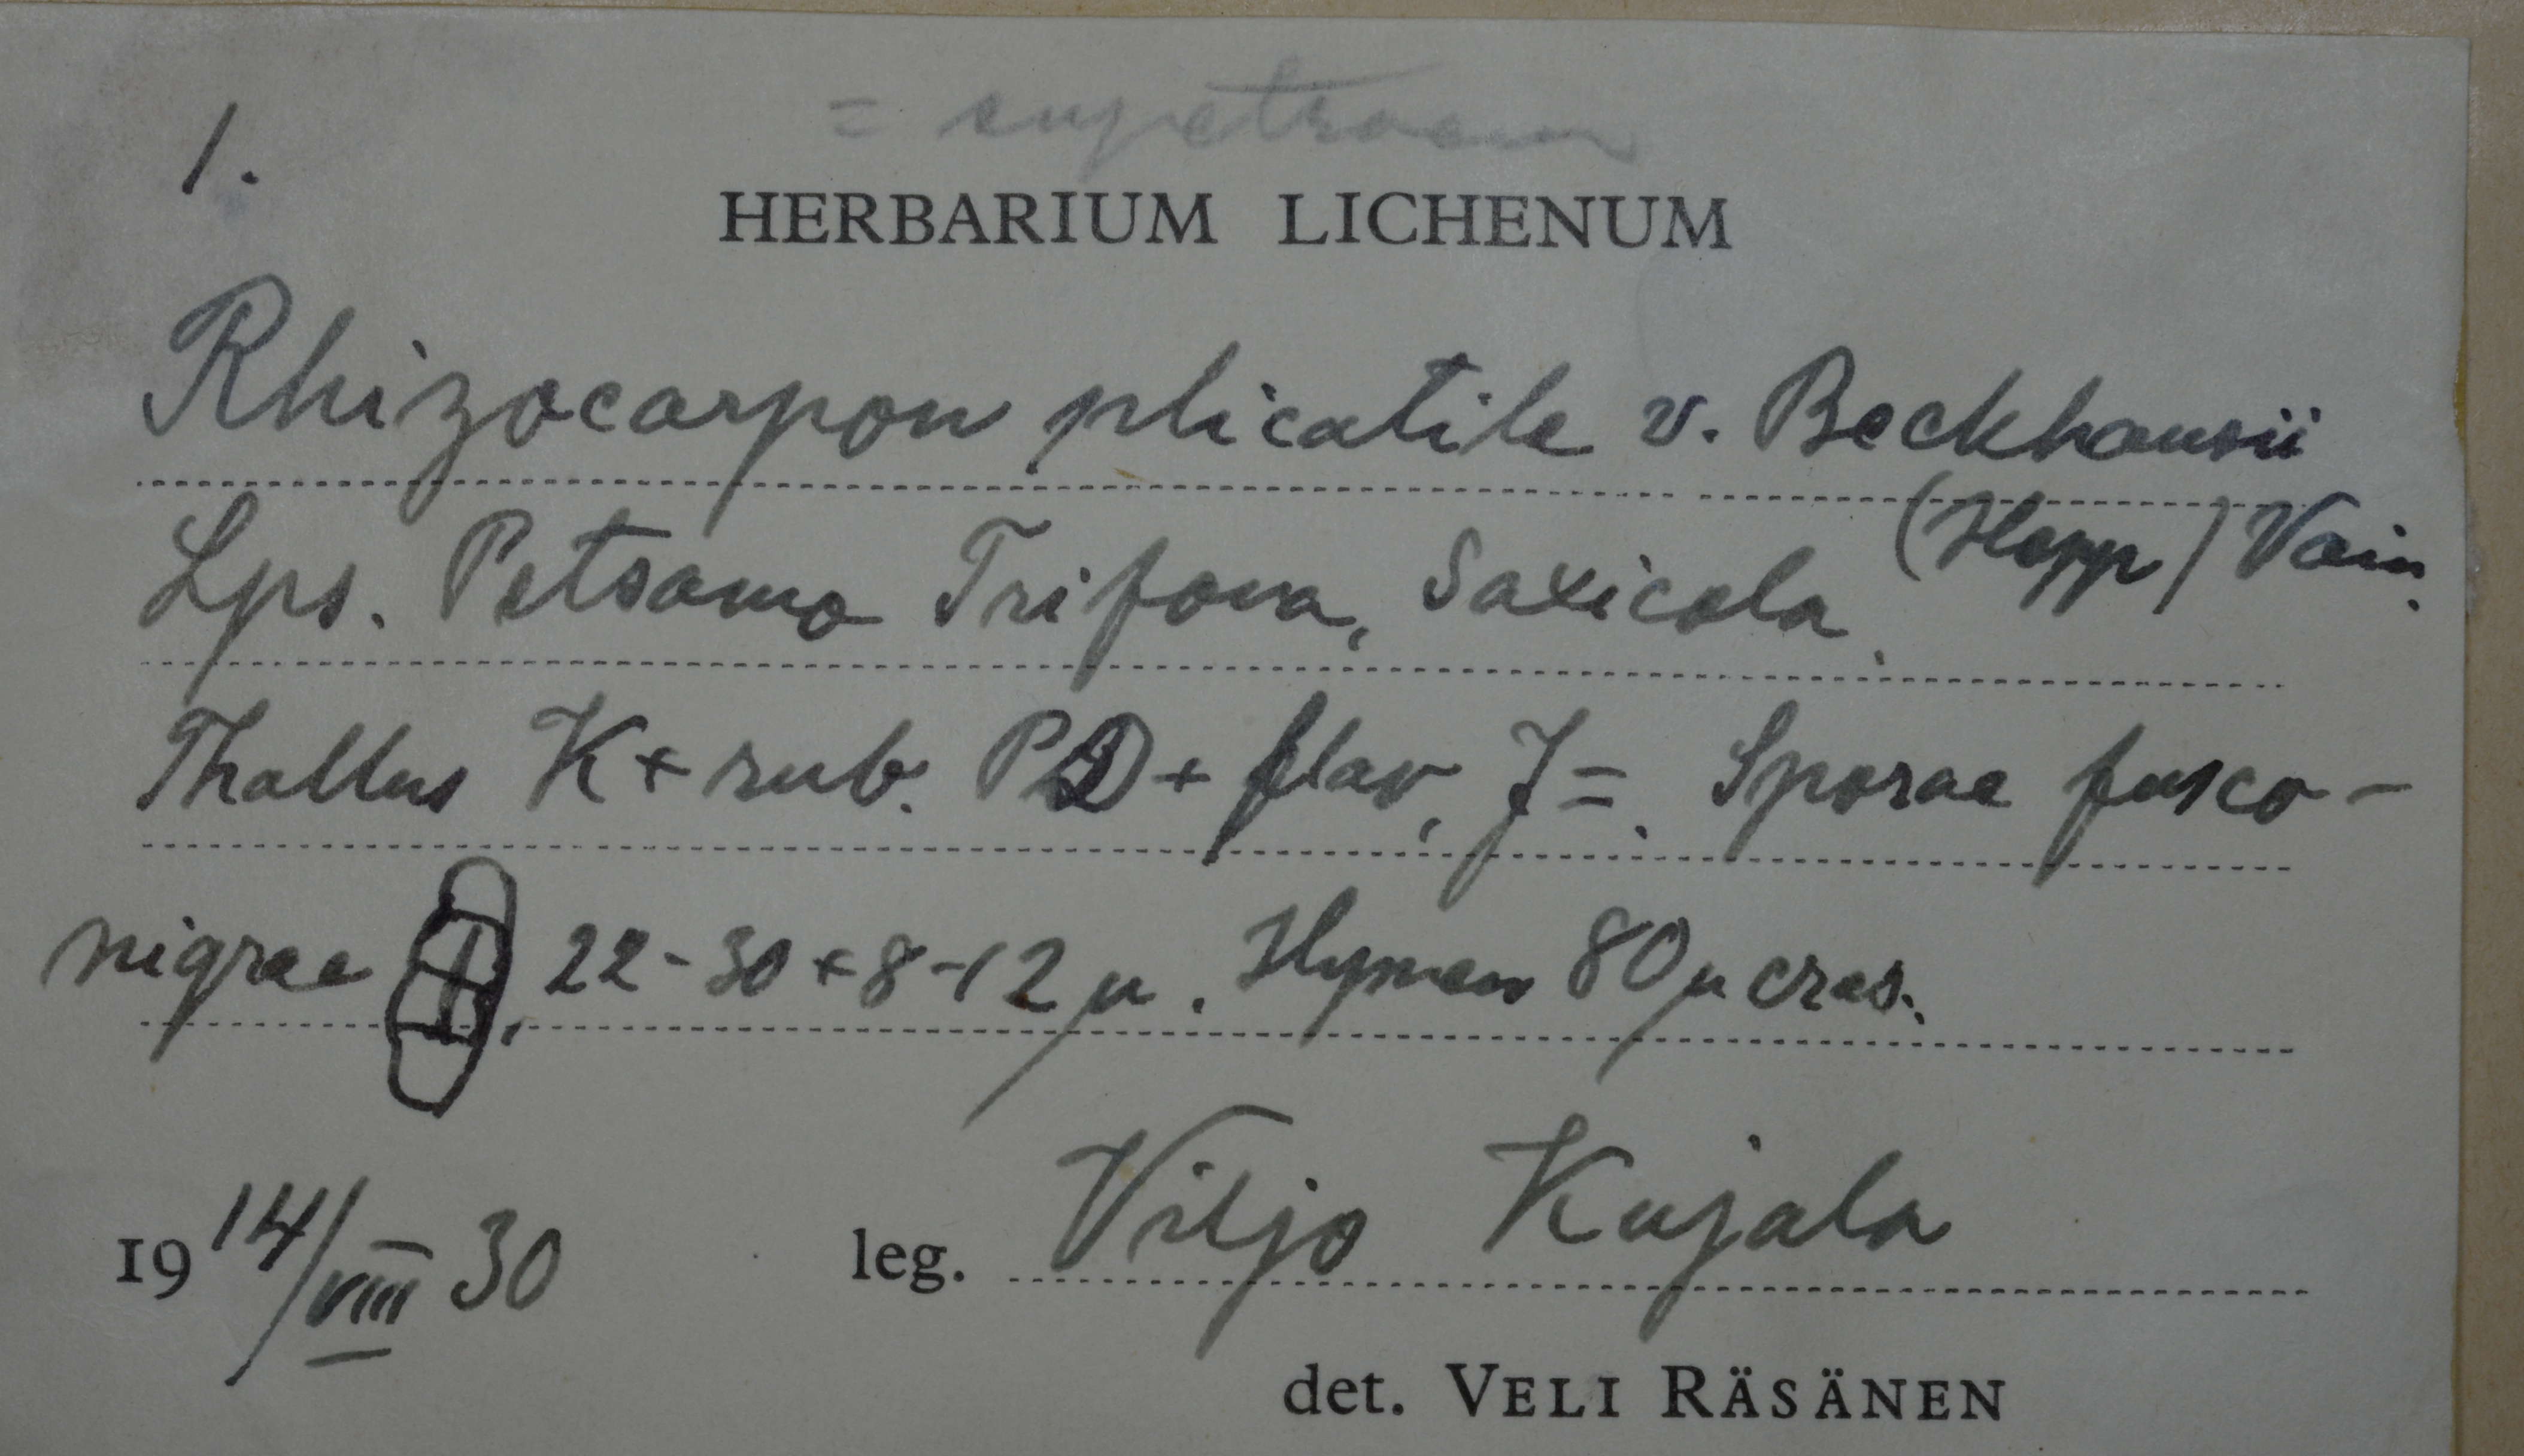 = eupetraeum
1.
HERBARIUM LICHENUM
Rhizocarpon plicatile v. Beckhausii
(Hepp) Vain.
Lps. Petsamo Trifona, Saxicola.
Thallus K+ rub. PD+ flav, J=. Sporae fusco-
nigrae, 22-30+8-12 µ. Hymen 80µ cras.
1914/VIII 30 leg. Viljo Kujala
det. VELI RÄSÄNEN